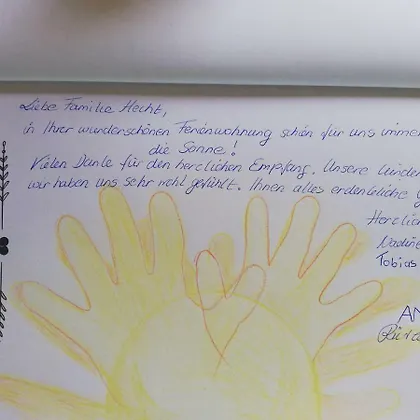 Liebe Familie Hecht,
in Ihrer wunderschönen Ferienwohnung schön für uns immer
die Sonne!
Vielen Danke für den herzlichen Empfang. Unsere Kinder
wir haben uns sehr wohl gefühlt. Ihnen alles erdenkliche
Herzlich
Nadine
Tobias
AN